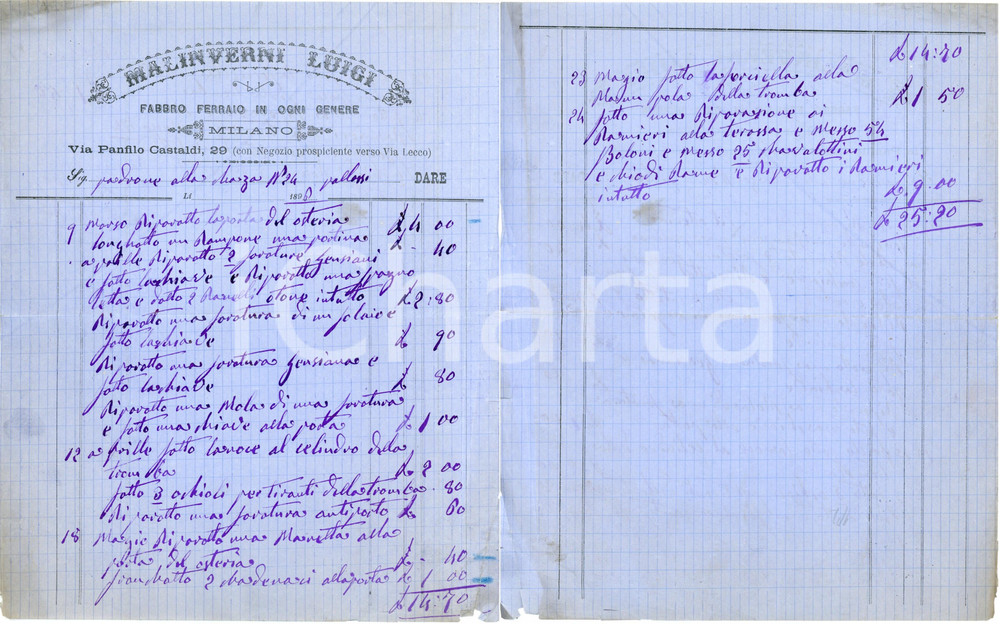 MALINVERNI LUIGI
FABBRO FERRAIO IN OGNI GENERE
MILANO
Via Panfilo Castaldi, 29 (con Negozio prospiciente verso Via Lecco)
Sig. padrone alla N° 24 DARE
Li 189
9 Marso Riparatto laporta del osteria £ 4 00
longhatto un Rampone una portina
aprille Riparatto 2 forature Gensiani £ - 40
e fatto lachiave e Riparatto una
e 2 otone intutto £ 2:80
Riparatto una foratura di un
fatto lachiave £ 90
Riparatto una foratura Gensiana e
fatto lachiave £ 80
Riparatto una Mola di una foratura
e fatto una chiave alla porta £ 1 00
12 aprille fatto al celindro della
tromba £ 2 00
fatto 3 ochioli per tiranti della tromba - 80
Riparatto una foratura antiporto £ 60
18 Magio Riparatto una Manetta alla
porta del osteria £ - 40
2 chadenaci allaporta £ 1 00
£ 14:70
£ 14:70
23 Magio fatto alla
della tromba £ 1 50
24 fatto una Riparasione ai
Ramieri alla terassa e Messo 54
Boloni e Messo 25
e chiodi Rame e Riparatto i Ramieri
intutto £ 9:00
£ 25:20
iCharta